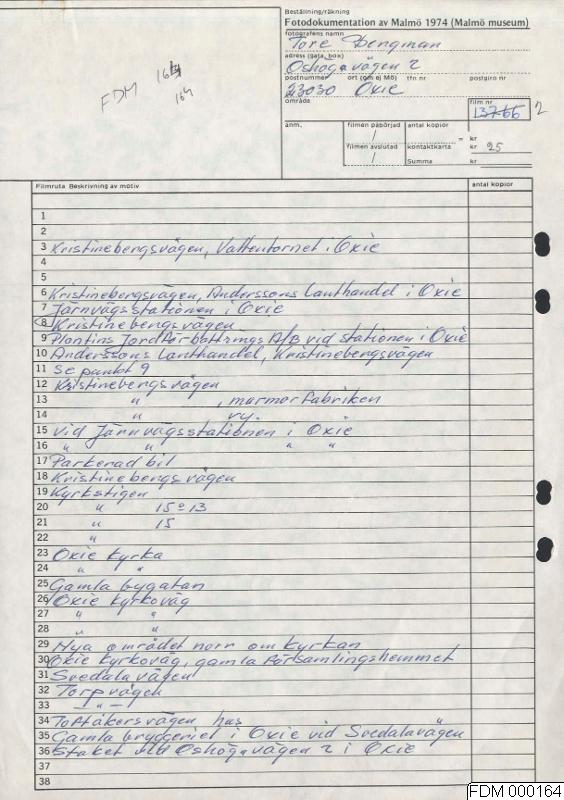 Beställning/räkning
Fotodokumentation av Malmö 1974 (Malmö museum)
fotografens namn
Tore Bengman
adress (gata, box)
Oshögavägen 2
postnummer ort (om ej Mö) tfn nr postgiro nr
23030 Oxie
område film nr
13766 2
FDM 164
164
anm. filmen påbörjad antal kopior
/ = kr
filmen avslutad kontaktkarta kr 25
/ Summa kr
Filmruta Beskrivning av motiv antal kopior
1
2
3 Kristinebergsvägen, Vattentornet i Oxie
4
5
6 Kristinebergsvägen, Anderssons Lanthandel i Oxie
7 Järnvägsstationen i Oxie
8 Kristinebergsvägen
9 Plantins Jordförbättrings A/B vid stationen i Oxie
10 Anderssons Lanthandel, Kristinebergsvägen
11 se punkt 9
12 Kristinebergsvägen
13 " , murmorfabriken
14 " vy.
15 Vid Järnvägsstationen i Oxie
16 " " " "
17 Parkerad bil
18 Kristinebergsvägen
19 Kyrkstigen
20 " 15 o 13
21 " 15
22 "
23 Oxie Kyrka
24 " "
25 Gamla bygatan
26 Oxie Kyrkoväg
27 " "
28 " "
29 Nya området norr om Kyrkan
30 Oxie Kyrkoväg, gamla församlingshemmet
31 Svedalavägen
32 Torpvägen
33 — " —
34 Toftåkersvägen hus
35 Gamla bryggeriet i Oxie vid Svedalavägen
36 Staket vid Oshögavägen 2 i Oxie
37
38
FDM 000164